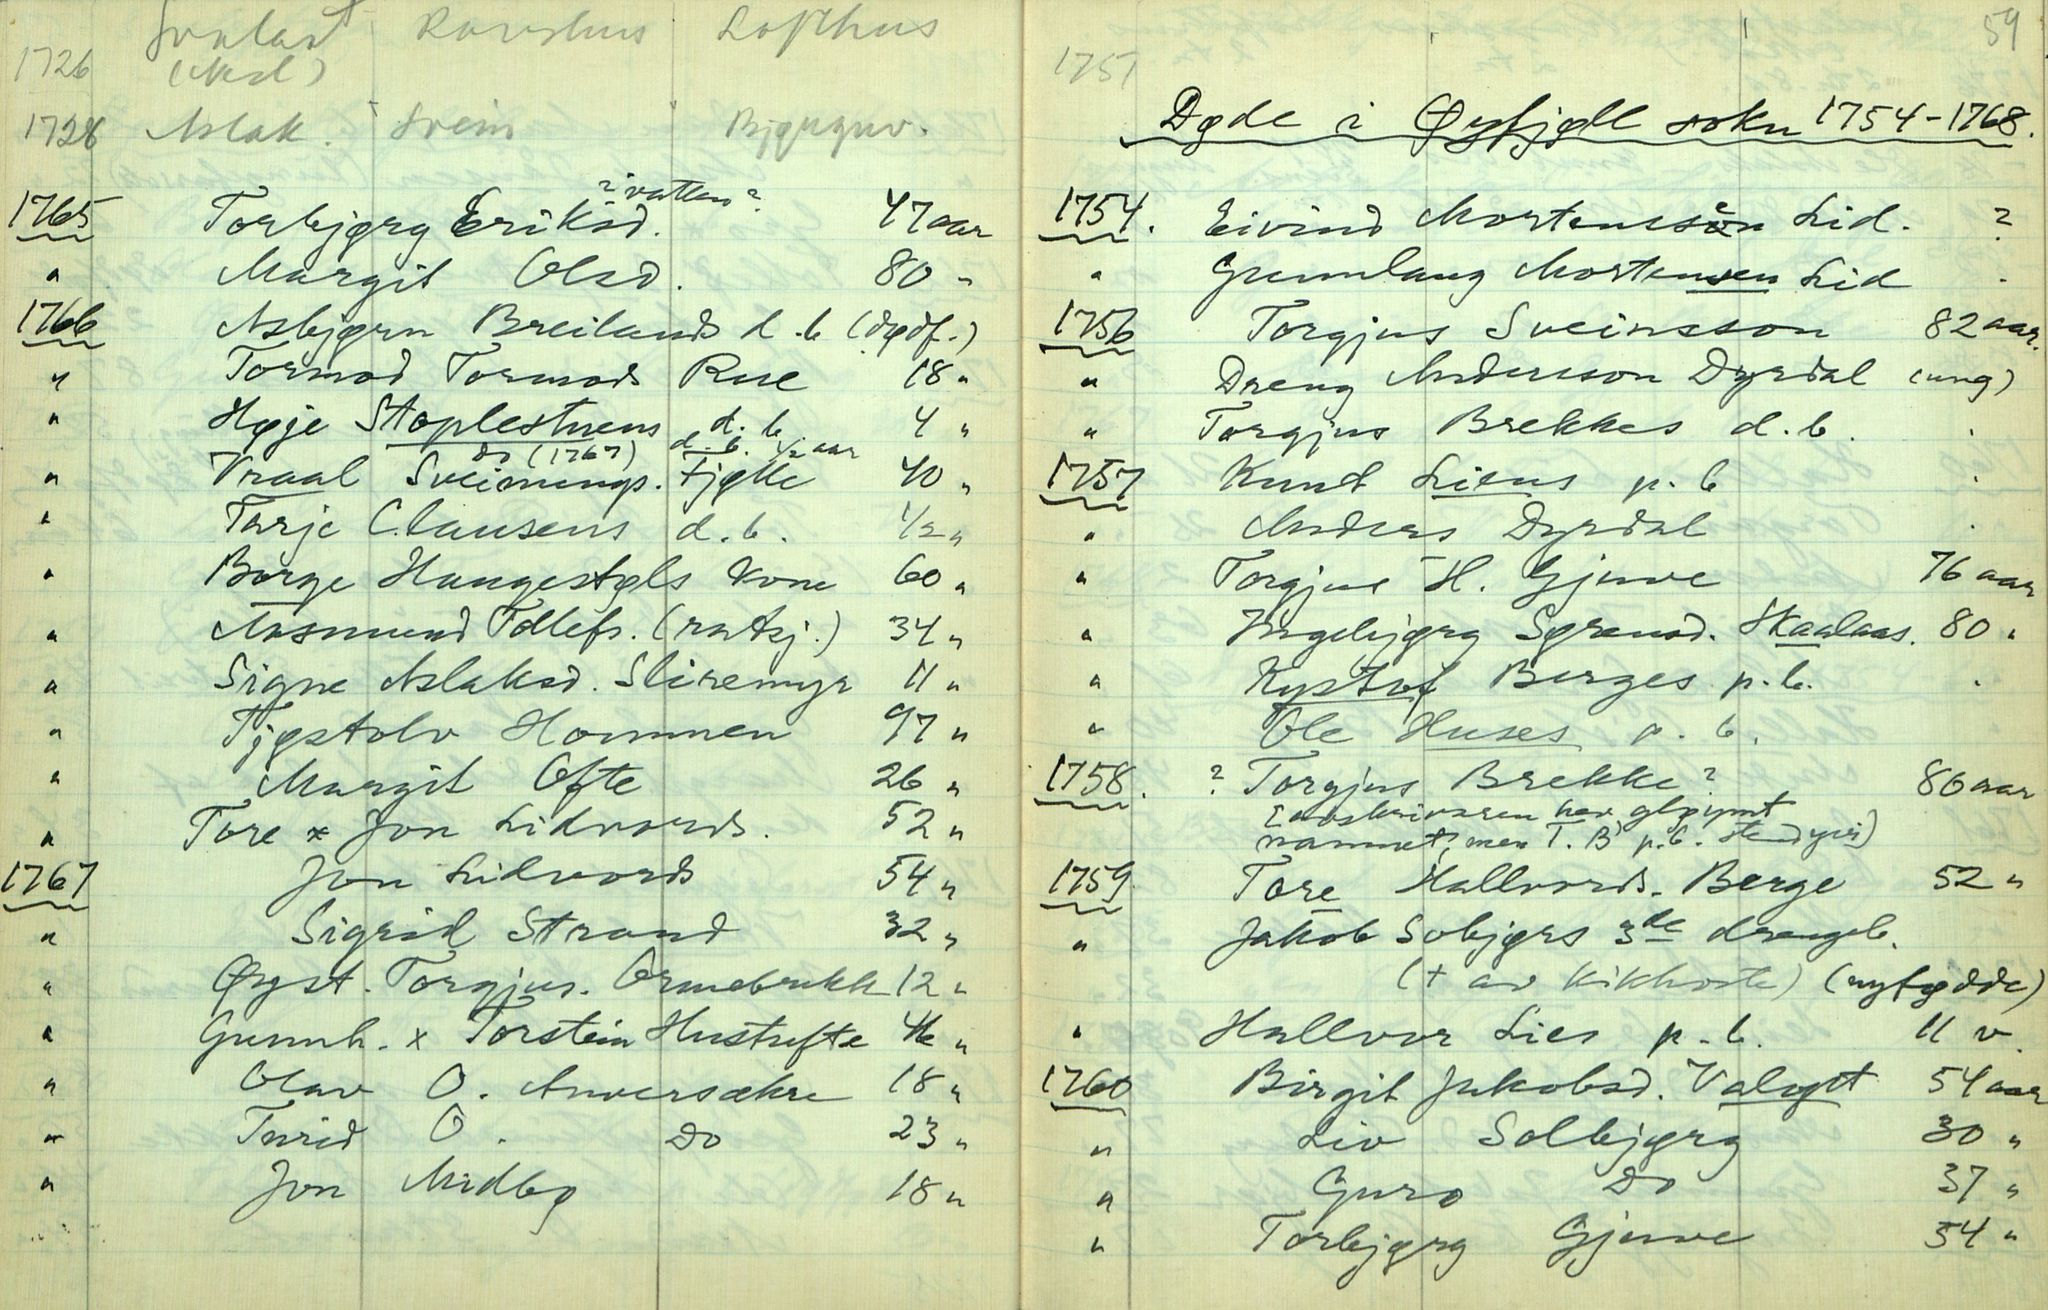 Ravshus Lofthus
1726
1728 Aslak. Svein Bjørguv.
1765 Torbjørg Eriksd. ? i vatten ? 47 aar
" Margit Olsd. 80 "
1766 Asbjørn Breilands d.b (dødf.)
" Tormod Tormods Rue 18 "
" Høje Staplestuens d.b. 4 "
Do (1767) d.b. 1/2 aar
" Vraal Sveinungs. Fjølle 40 "
" Tarje Clausens d.b. 1/2 "
" Børge Haugestøls Kone 60 "
" Aasmund Tollefs. 34 "
" Signe Aslaksd. Sliremyr 11 "
" Tjøstolv Hommen 97 "
" Margit Ofte 26 "
" Tore x Jon Lidvords. 52 "
1767 Jon Lidvords 54 "
" Sigrid Strand 32 "
" Øyst. Torgjus. Ormebrekk 12 "
" Gunnh. x Torstein Hustufte 46 "
" Olav O. Anversækre 18 "
" Turid O. Do 23 "
" Jon Midbø 18 "
59
1751
Døde i Øyfjell sokn 1754-1768.
1754. Eivind Mortensson Lid. ?
" Gunnlaug Mortensen Lid "
1756 Torgjus Sveinsson 82 aar.
" Dreng Andersson Dyrdal (ung)
" Torgjus Brekkes d.b. "
1757 Knut Liens p.b "
" Anders Dyrdal "
" Torgjus H. Gjuve 76 aar
" Ingebjørg Sørensd. Skaalaas. 80 "
" Kystof Berges p.b. "
" Ole Huses p.b.
1758. ? Torgjus Brekke ? 86 aar
[avskrivaren har gløymt
namnet, men T. B p.b. stend yvi)
1759 Tore Hallvords. Berge 52 "
" Jakob Sobjørs 3de drengeb.
(+ av Kikhoste) (nyfødde)
" Hallvor Lies p.b. 11 v.
1760 Birgit Jakobsd. Valøyt 54 aar
" Liv Solbjørg 30 "
" Guro Do 37 "
" Torbjørg Gjuve 54 "